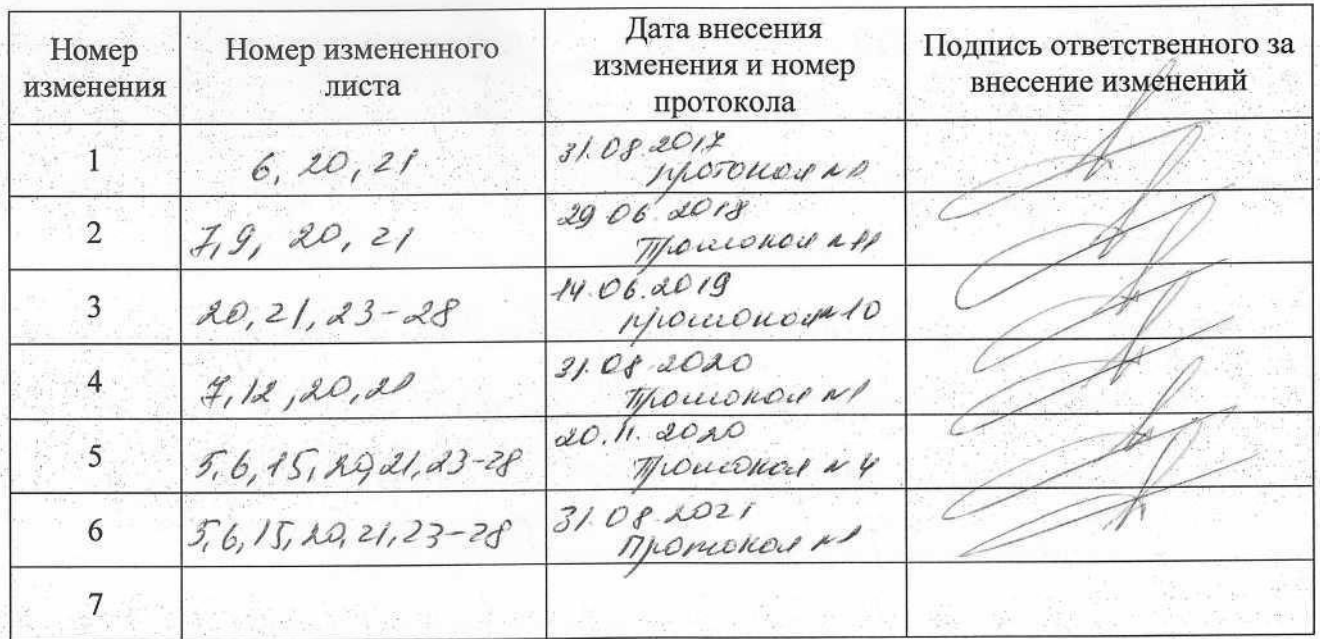 Номер изменения
Номер измененного листа
Дата внесения изменения и номер протокола
Подпись ответственного за внесение изменений
1
6, 20, 21
31.08.2017
протокол №1
2
7,9, 20, 21
29.06.2018
Протокол №11
3
20, 21, 23-28
14.06.2019
протокол №10
4
7, 12, 20, 21
31.08.2020
Протокол №1
5
5,6,15,20,21,23-28
20.11.2020
Протокол №4
6
5,6,15,20,21,23-28
31.08.2021
Протокол №1
7